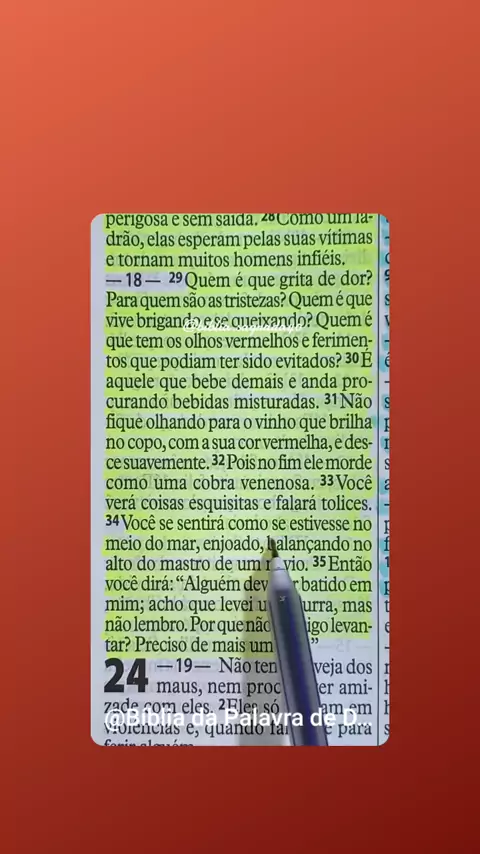 perigosa e sem saída. 28Como um la-
drão, elas esperam pelas suas vítimas
e tornam muitos homens infiéis.
— 18 — 29Quem é que grita de dor?
Para quem são as tristezas? Quem é que
vive brigando e se queixando? Quem é
que tem os olhos vermelhos e ferimen-
tos que podiam ter sido evitados? 30É
aquele que bebe demais e anda pro-
curando bebidas misturadas. 31Não
fique olhando para o vinho que brilha
no copo, com a sua cor vermelha, e des-
ce suavemente. 32Pois no fim ele morde
como uma cobra venenosa. 33Você
verá coisas esquisitas e falará tolices.
34Você se sentirá como se estivesse no
meio do mar, enjoado, balançando no
alto do mastro de um navio. 35Então
você dirá: “Alguém dev r batido em
mim; acho que levei u urra, mas
não lembro. Por que não igo levan-
tar? Preciso de mais um ”
24 — 19 — Não ten veja dos
maus, nem proc er ami-
zade com eles. 2Eles só am em
@Bíblia da Palavra de D...
violências e, quando fa e para
ferir alguém